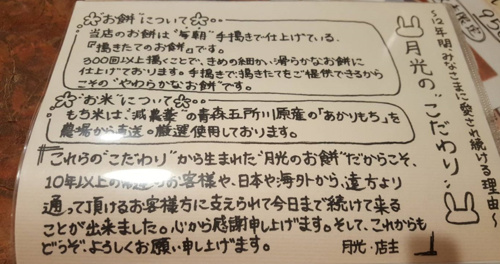 〜12年間、みなさまに愛され続ける理由〜
月光の"こだわり"
"お餅"について
当店のお餅は"毎朝"手搗きで仕上げている、
『搗きたてのお餅』です。
300回以上搗くことで、きめの細かい滑らかなお餅に
仕上げております。手搗きで搗きたてをご提供できるから
こその"やわらかなお餅"です。
"お米"について
もち米は、"減農薬"の青森五所川原産の「あかりもち」を
農場から直送。厳選使用しております。
これらの"こだわり"から生まれた"月光のお餅"だからこそ、
10年以上のお客様や、日本や海外から、遠方より
通って頂けるお客様方に支えられて今日まで続けて来る
ことが出来ました。心から感謝申し上げます。そして、これからも
どうぞよろしくお願い申し上げます。
月光・店主